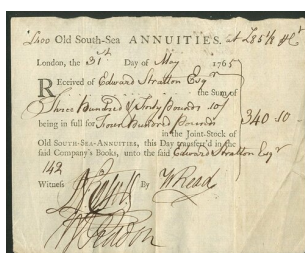 £400 Old South-Sea ANNUITIES. at £85⅛ ⅌ Ct
London, the 31st Day of May 1765
Received of Edward Stratton Esqr
the Sum of
Three Hundred & Forty Pounds 10/
being in full for Four Hundred Pounds 340 .. 10 -
in the Joint-Stock of
Old SOUTH-SEA-ANNUITIES, this Day transfer'd in the
said Company's Books, unto the said Edward Stratton Esqr
142
Witness By WRead